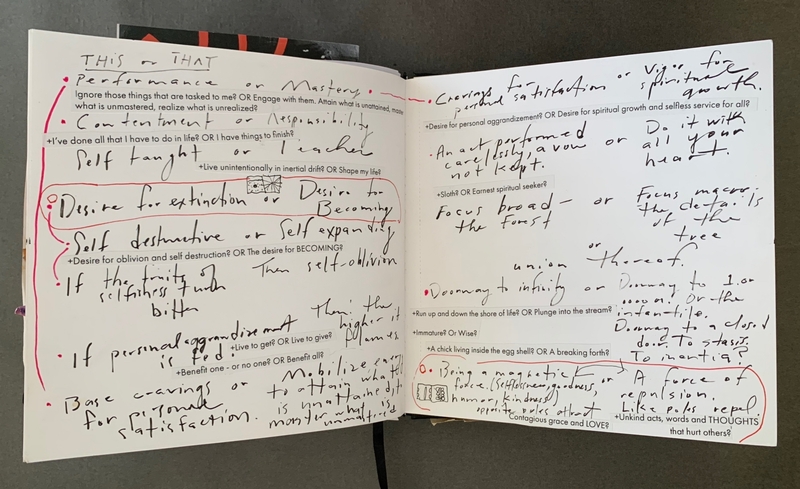 THIS or THAT
Performance or Mastery
Ignore those things that are tasked to me? OR Engage with them. Attain what is unattained, master
what is unmastered, realize what is unrealized?
Contentment or Responsibility
+I've done all that I have to do in life? OR I have things to finish?
Self taught or Teacher
+Live unintentionally in inertial drift? OR Shape my life?
Desire for extinction or Desire for
Becoming
Self destructive or Self expanding
+Desire for oblivion and self destruction? OR The desire for BECOMING?
If the fruits of Then self-oblivion
selfishness turn
bitter
If personal aggrandizement Then: the
is fed: higher it
flames
+Live to get? OR Live to give?
+Benefit one - or no one? OR Benefit all?
Base cravings or Mobilize
for personal to attain what
satisfaction. is unattained,
what is
unmastered
Cravings for or Vigor for
personal satisfaction spiritual
growth.
+Desire for personal aggrandizement? OR Desire for spiritual growth and selfless service for all?
An act performed Do it with
carelessly, a vow or all your
not kept. heart.
+Sloth? OR Earnest spiritual seeker?
Focus broad - or Focus macro:
the forest the details
of the
tree
or
union thereof.
Doorway to infinity or Doorway to 1. or
Or the
infantile.
+Run up and down the shore of life? OR Plunge into the stream?
Doorway to a closed
door. To stasis.
+Immature? Or Wise?
To inertia?
+A chick living inside the egg shell? OR A breaking forth?
Being a magnetic A force of
force. (selflessness, goodness, or repulsion.
humor, kindness) Like poles repel.
opposite poles attract
+Contagious grace and LOVE?
+Unkind acts, words and THOUGHTS
that hurt others?